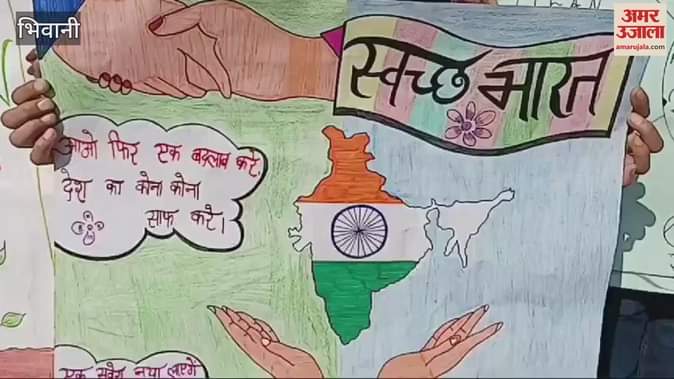 भिवानी
अमर
उजाला
amarujala.com
स्वच्छ भारत
आओ फिर एक बदलाव करे,
देश का कोना कोना
साफ करे।
एक सवेरा नया लाएगे